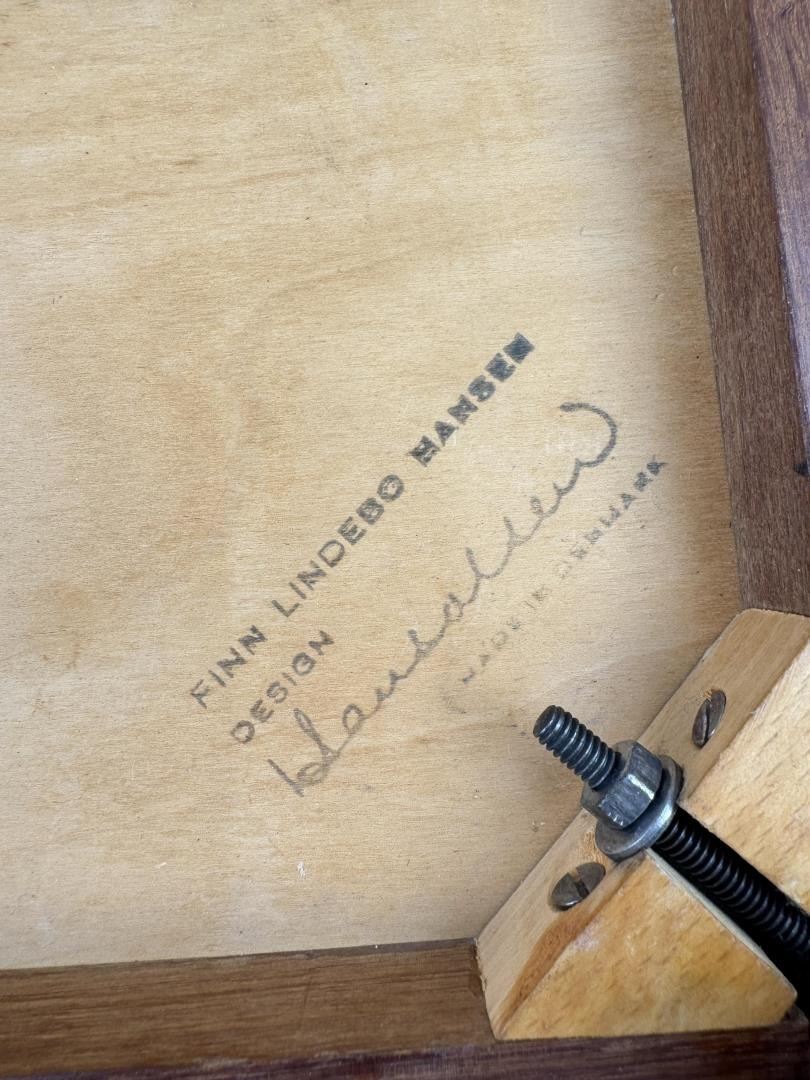 FINN LINDEBO HANSEN
DESIGN
MADE IN DENMARK